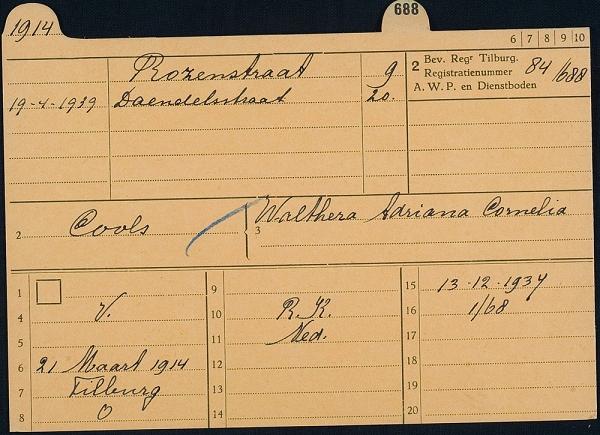 1914
688
6 7 8 9 10
Rozenstraat 9
19-4-1939 Daendelsstraat 20.
2 Bev. Regr Tilburg.
Registratienummer 84/688
A. W. P. en Dienstboden
2 Cools
3 Walthera Adriana Cornelia
1
4 V.
5
6 21 Maart 1914
7 Tilburg
8 O
9
10 R.K.
11 Ned.
12
13
14
15 13-12-1937
16 1/68
17
18
19
20